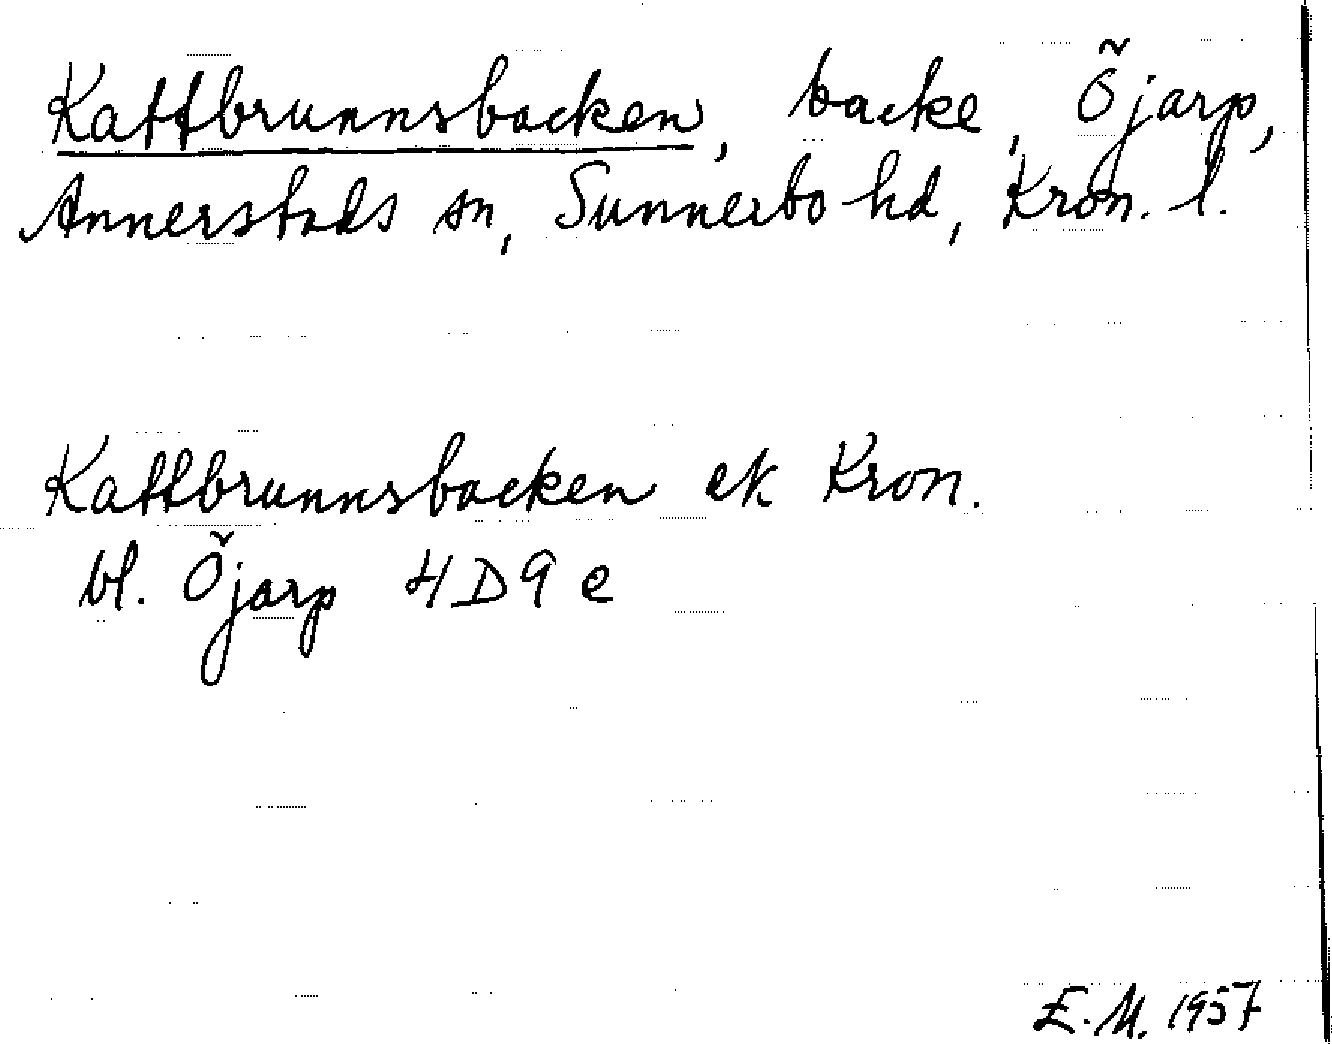 Kattbrunnsbacken, backe, Öjarp,
Annerstads sn, Sunnerbo hd, Kron. l.
Kattbrunnsbacken ek Kron.
bl. Öjarp 4D9e
E.M. 1957